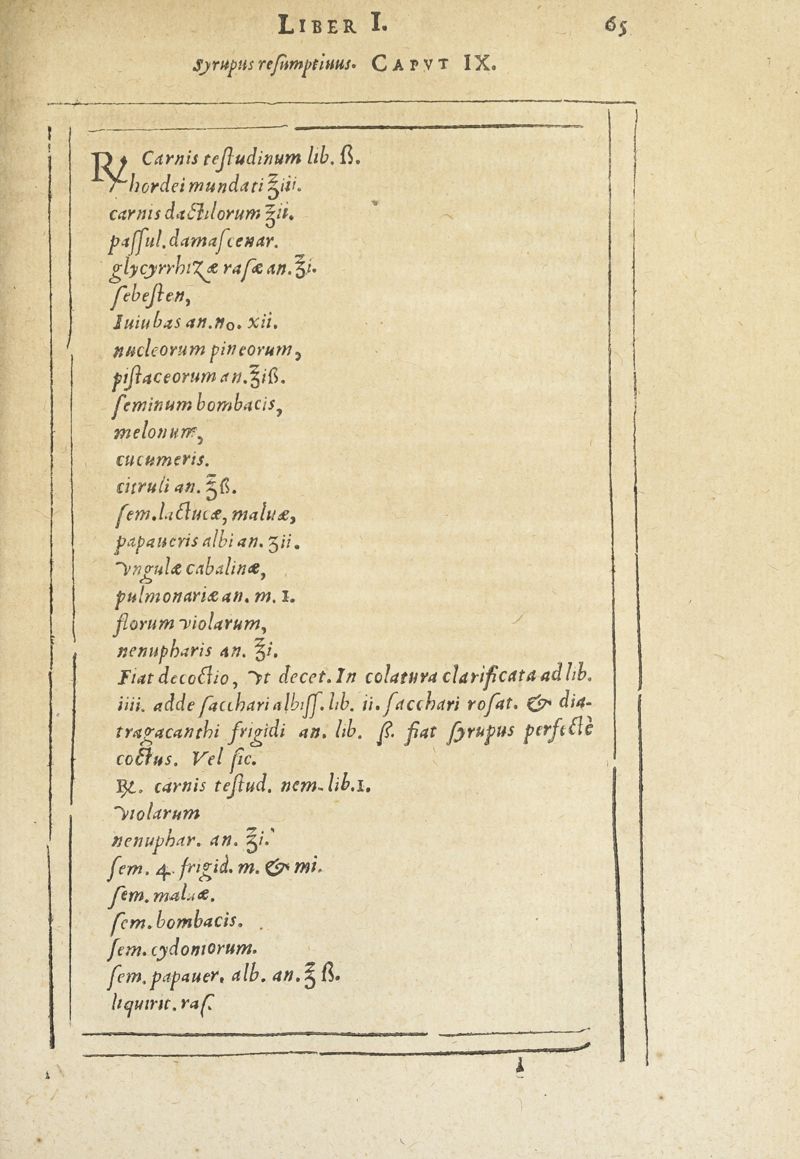 LIBER I. 65
Syrupus resumptiuus. CAPVT IX.
℞. Carnis testudinum lib. ß.
hordei mundati ℥iii.
carnis dactilorum ℥ii.
passul. damascenar.
glycyrrhizæ rasæ an. ℥i.
sebesten,
Iuiubas an. no. xii.
nucleorum pineorum,
pistaceorum an. ℥iß.
seminum bombacis,
melonum,
cucumeris.
citruli an. ℥ß.
sem. lactucæ, maluæ,
papaueris albi an. ʒii.
vngulæ cabalinæ,
pulmonariæ an. m. I.
florum violarum,
nenupharis an. ℥i.
Fiat decoctio, vt decet. In colatura clarificata ad lib.
iiii. adde sacchari albiss. lib. ii. sacchari rosat. & dia-
tragacanthi frigidi an. lib. ß. fiat syrupus perfectè
coctus. Vel sic.
℞. carnis testud. nem. lib. I.
violarum
nenuphar. an. ℥i.
sem. 4. frigid. m. & mi.
sem. maluæ.
sem. bombacis.
sem. cydoniorum.
sem. papauer. alb. an. ℥ ß.
liquirit. ras.
i